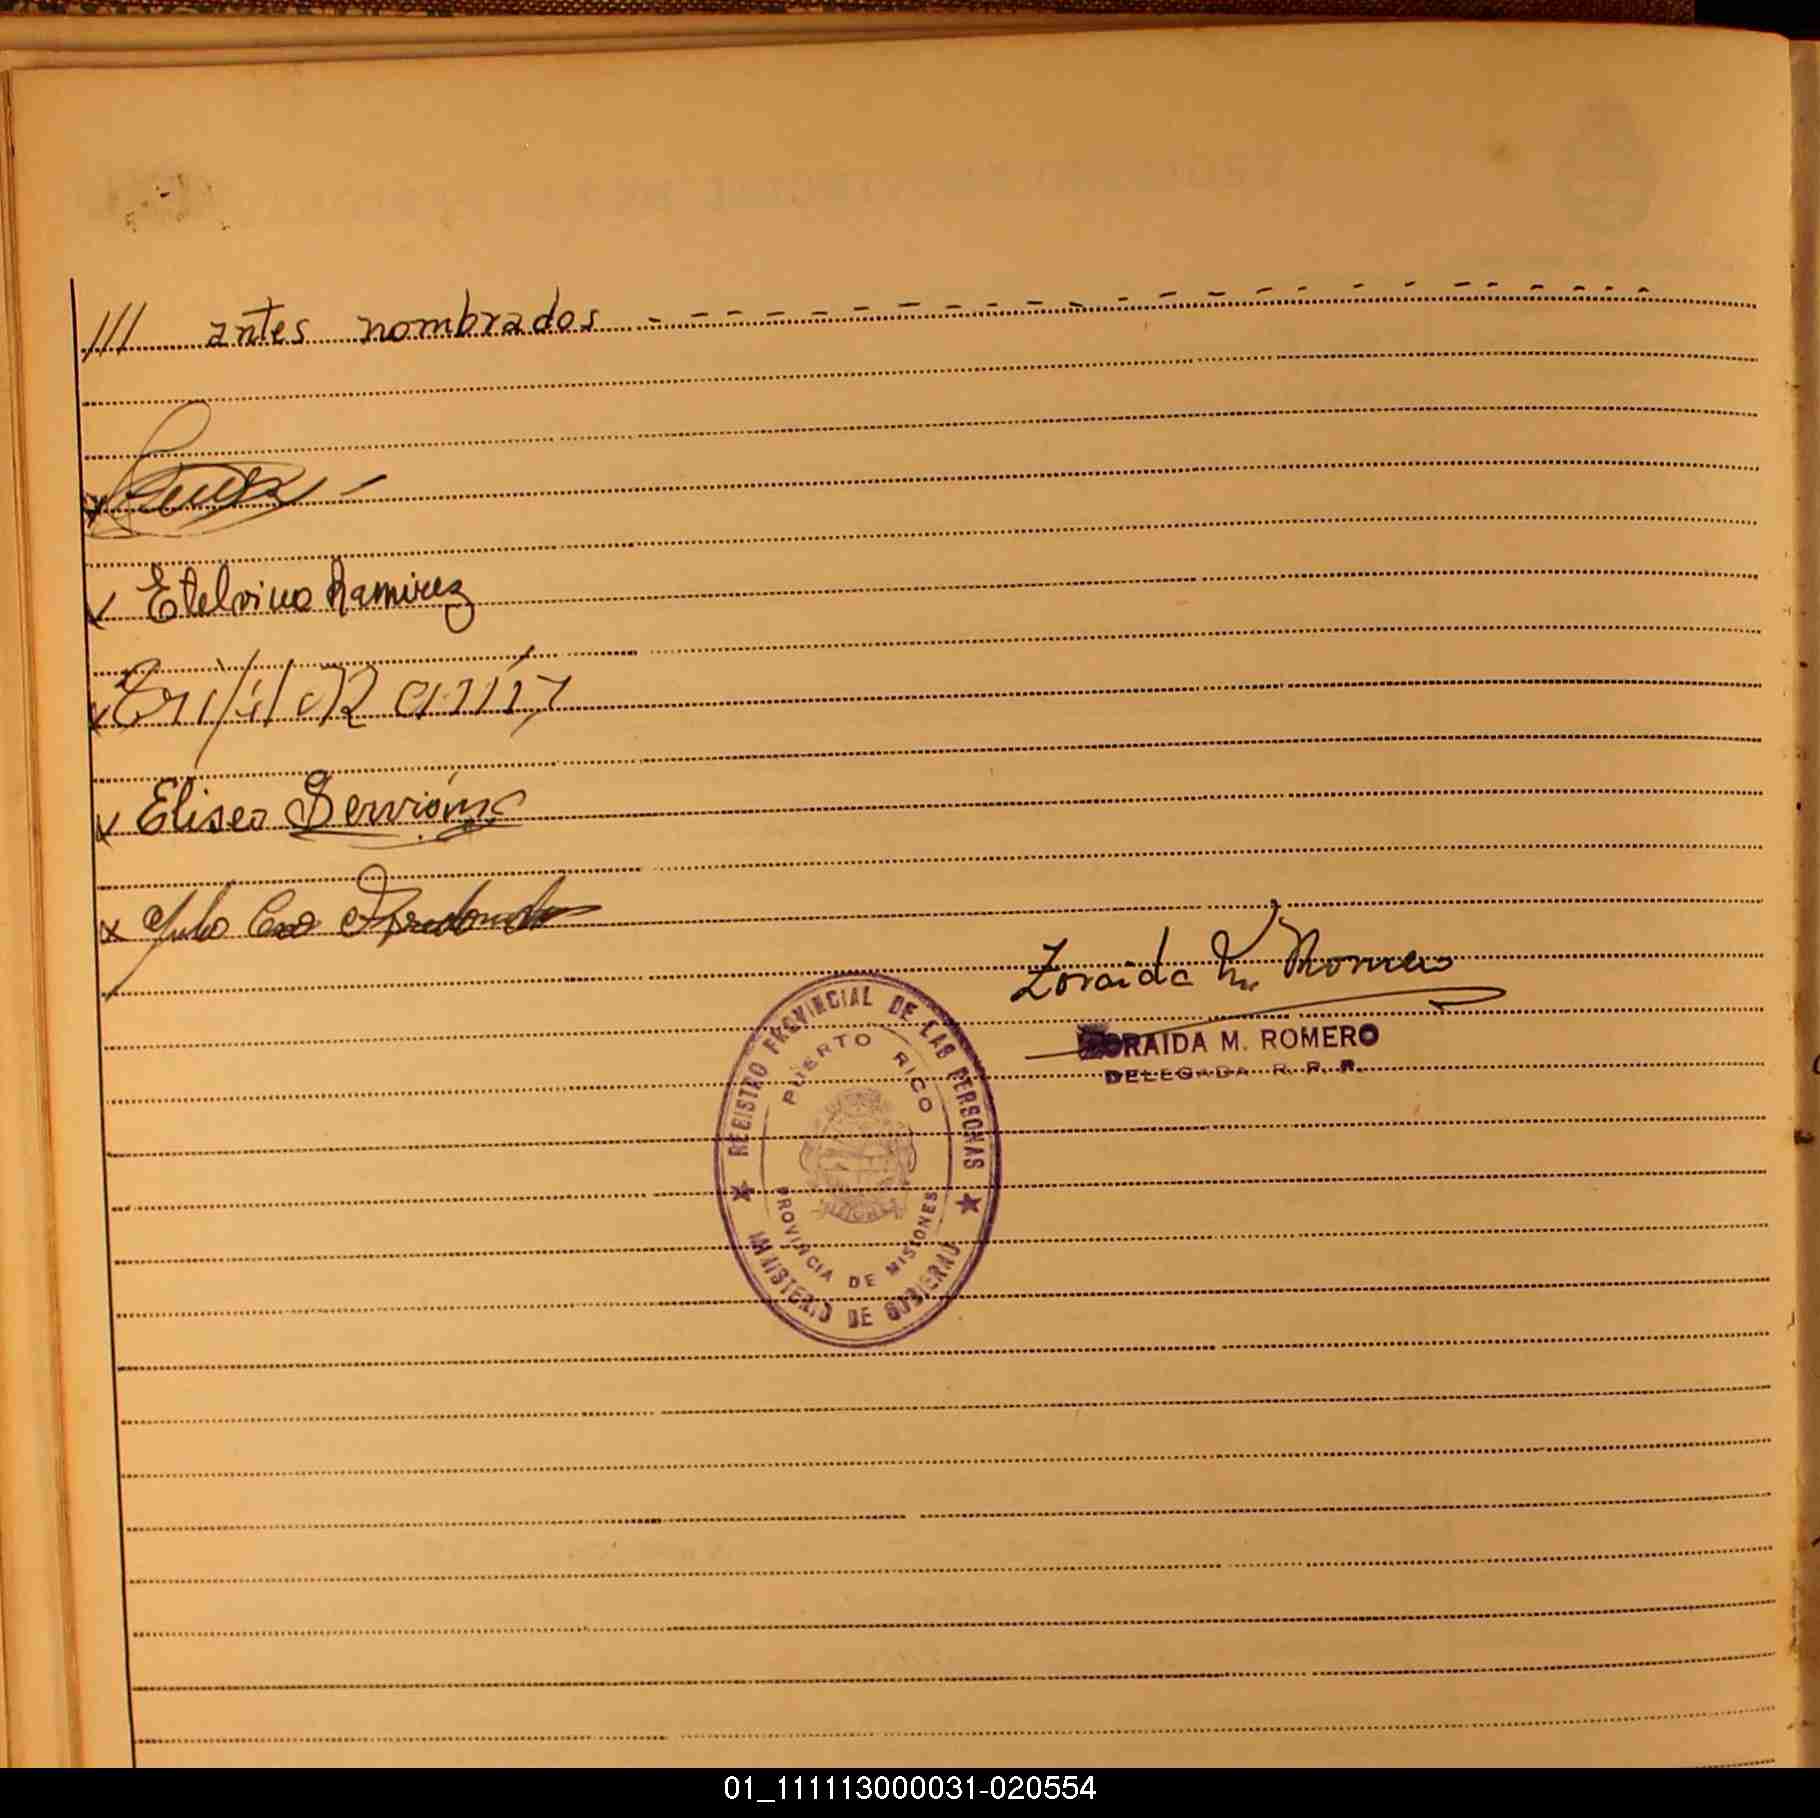 /// antes nombrados - - - - - - - - - - - - - - - - - - - - - -
x
x Etelvino Ramirez
x
x Eliseo
x Julio
Zoraida M. Romero
ZORAIDA M. ROMERO
DELEGADA R. P. P.
REGISTRO PROVINCIAL DE LAS PERSONAS
PUERTO RICO
PROVINCIA DE MISIONES
MINISTERIO DE GOBIERNO
01_111113000031-020554